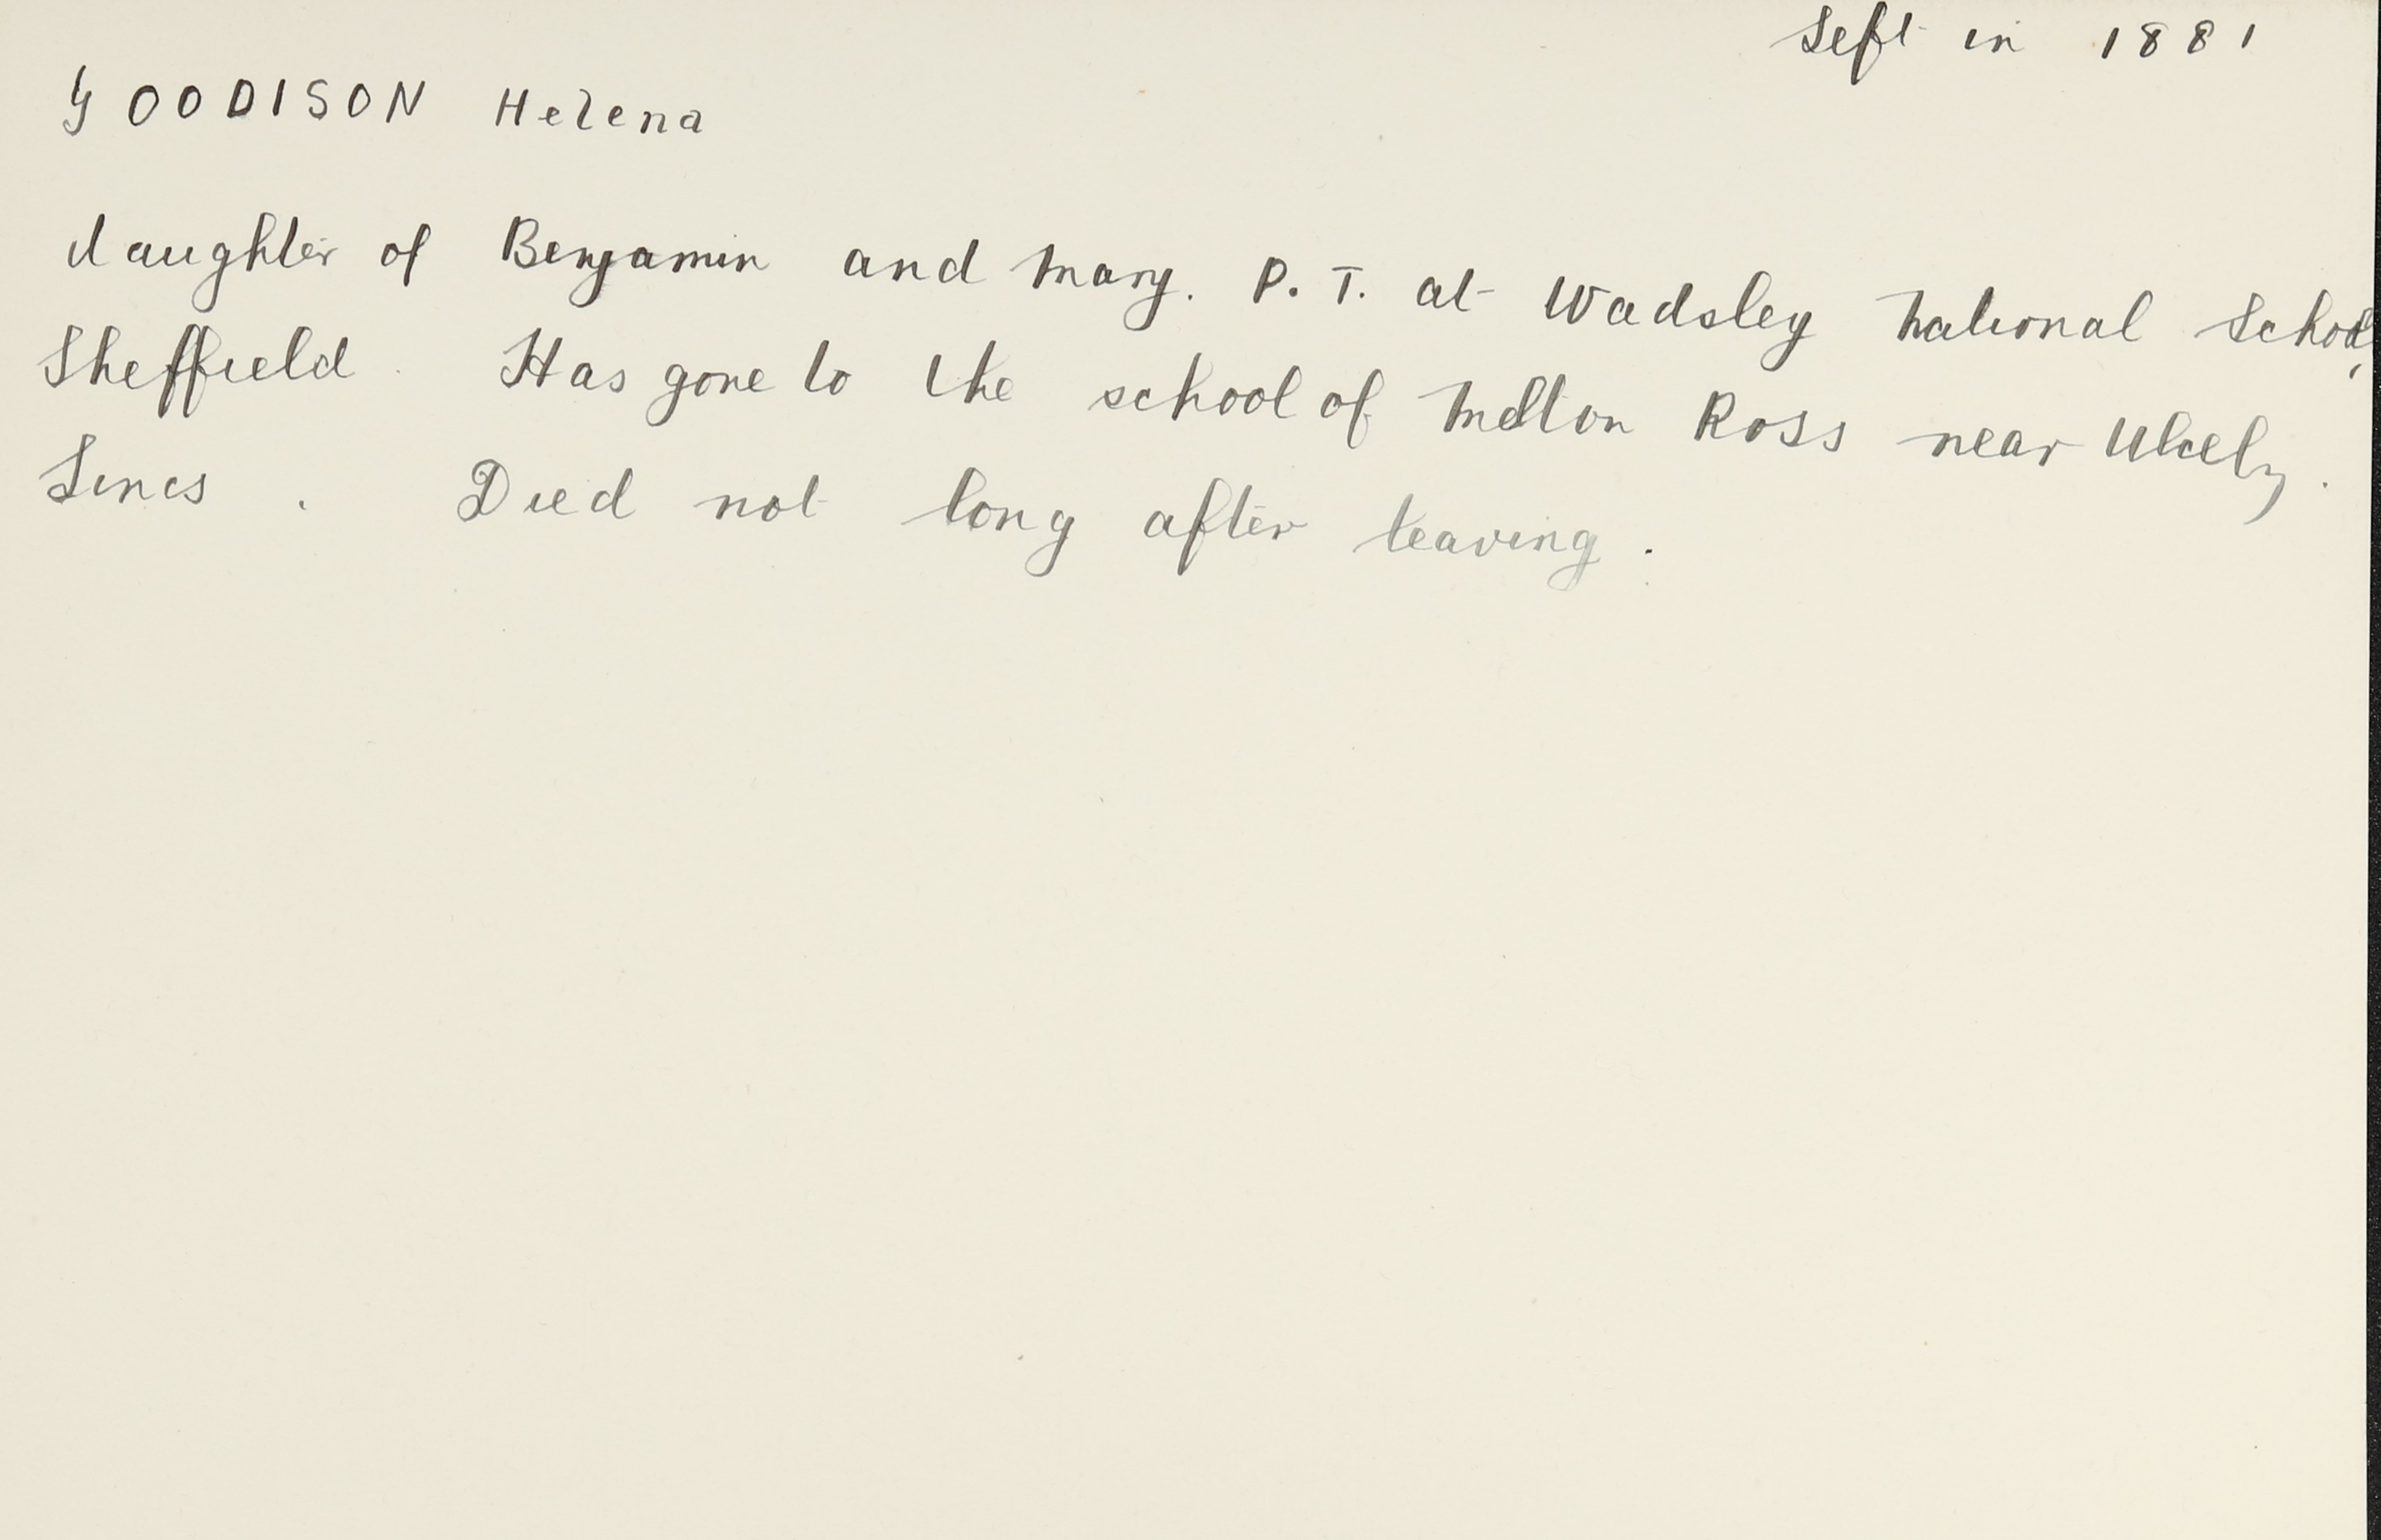 Left in 1881
GOODISON Helena
daughter of Benjamin and Mary. P. T. at Wadsley National School,
Sheffield. Has gone to the school of Melton Ross near Ulcely.
Lincs. Died not long after leaving.